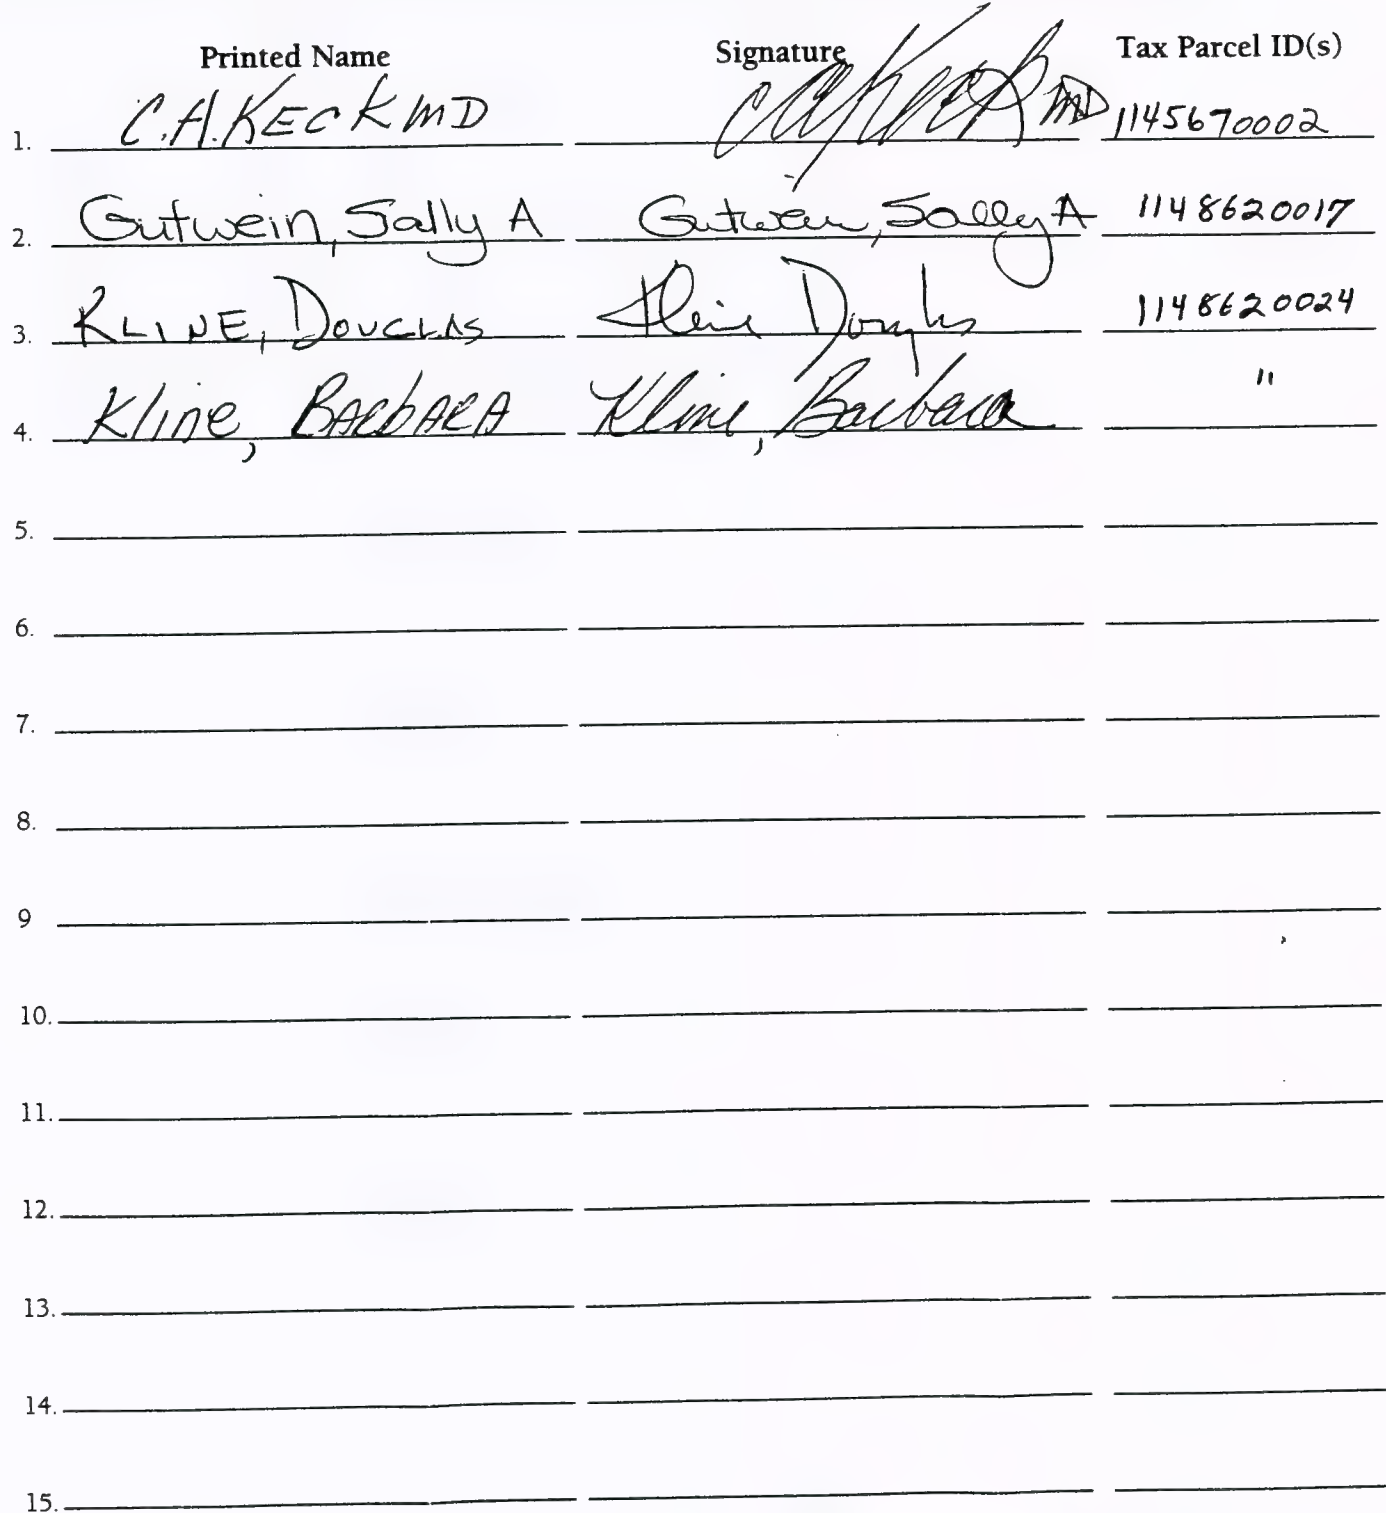 Printed Name Signature Tax Parcel ID(s)
1. C.A. KECK MD CA Keck MD 1145670002
2. Gutwein, Sally A Gutwein, Sally A 1148620017
3. KLINE, DOUGLAS Kline Douglas 1148620024
4. Kline, BARbARA Kline, Barbara "
5.
6.
7.
8.
9
10.
11.
12.
13.
14.
15.